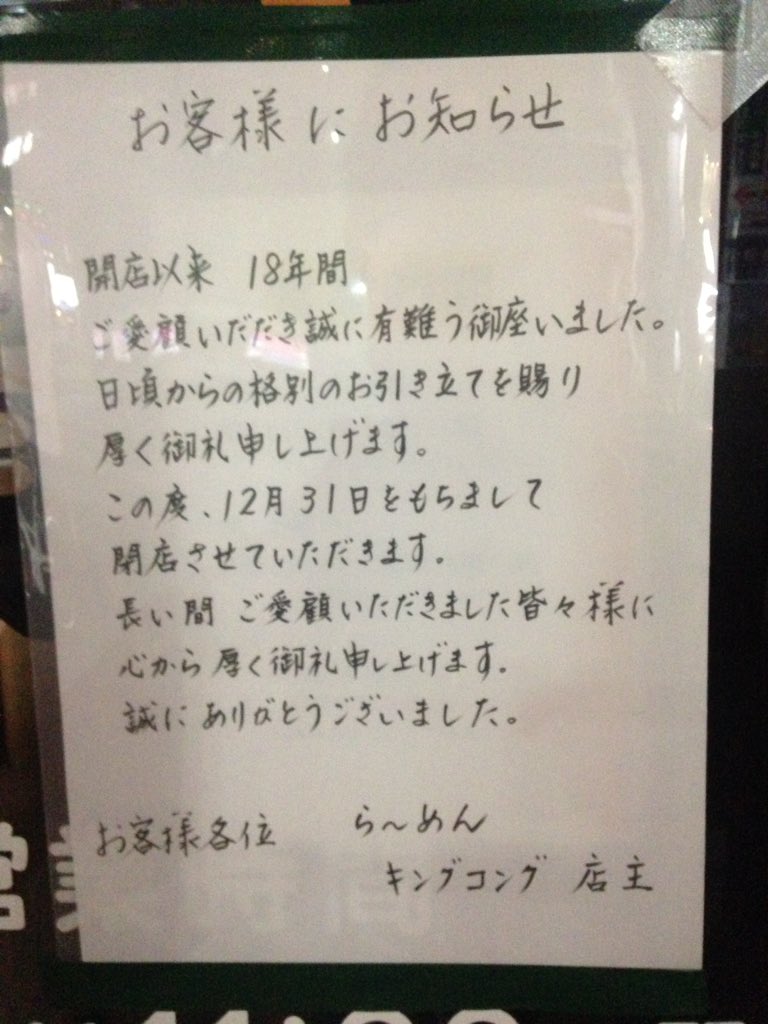 お客様にお知らせ
開店以来 18年間
ご愛顧いだだき誠に有難う御座いました。
日頃からの格別のお引き立てを賜り
厚く御礼申し上げます。
この度、12月31日をもちまして
閉店させていただきます。
長い間 ご愛顧いただきました皆々様に
心から厚く御礼申し上げます。
誠にありがとうございました。
お客様各位 ら〜めん
キングコング 店主